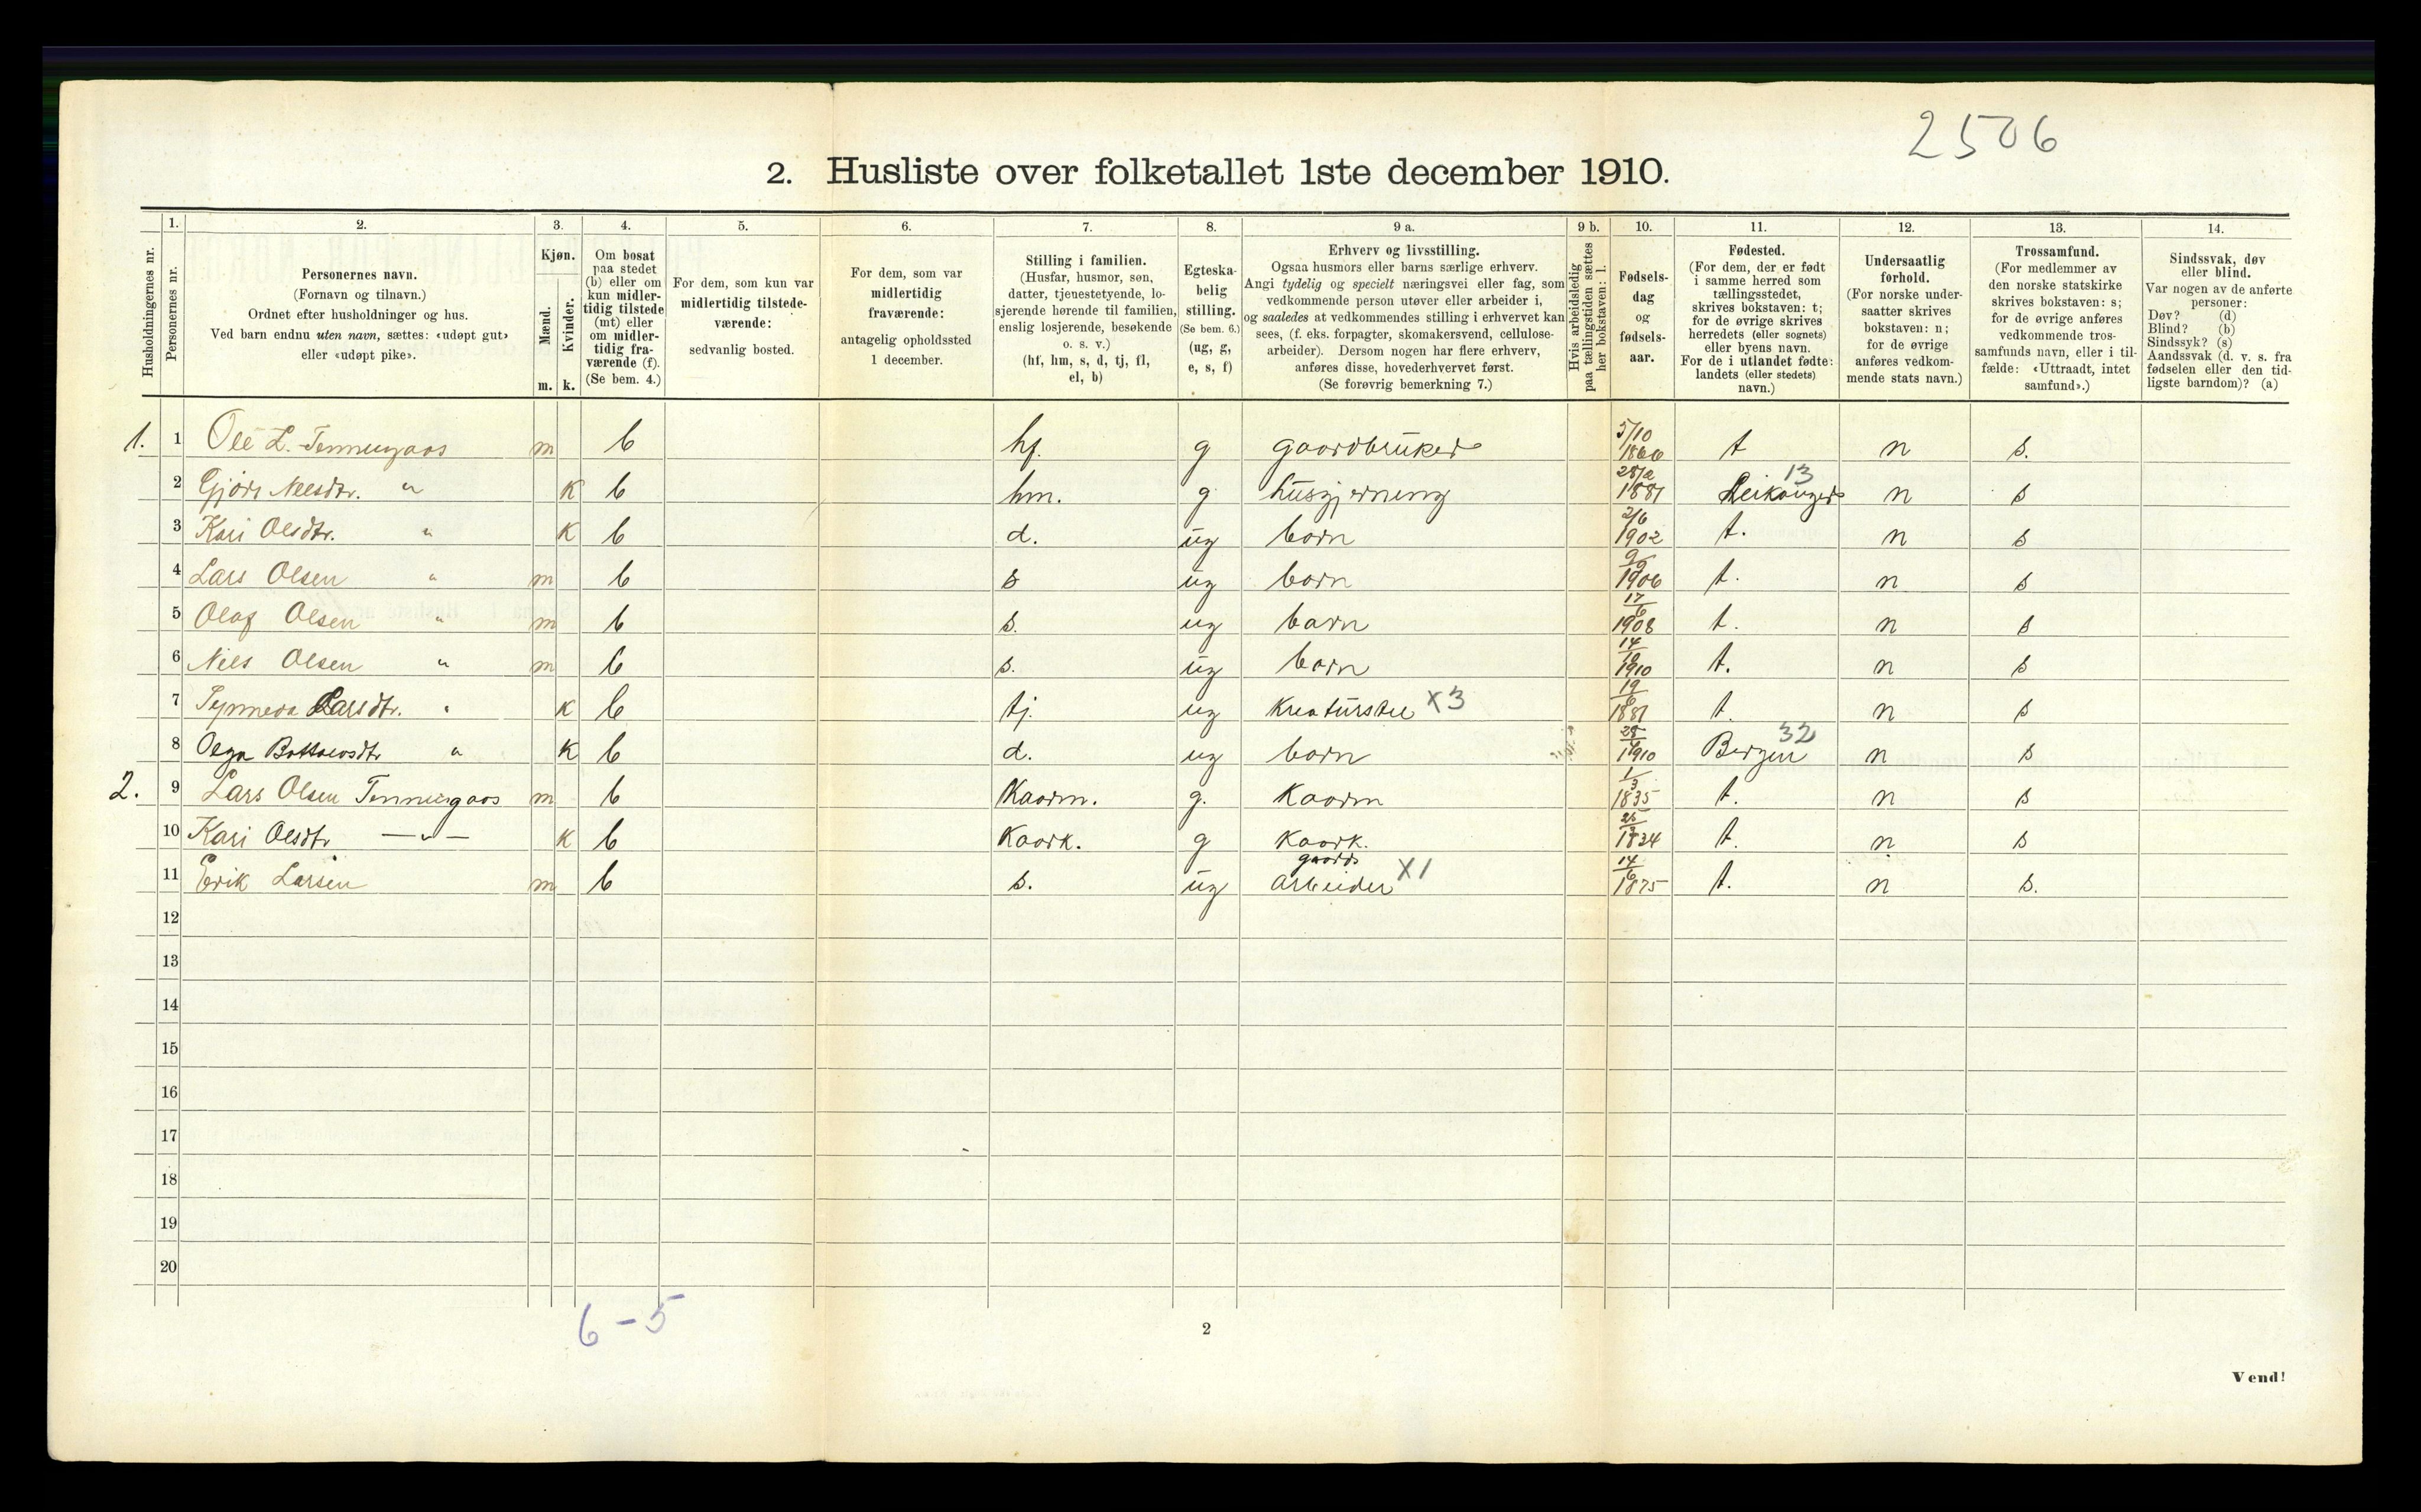 2506
2. Husliste over folketallet 1ste december 1910.
1. 2. 3. 4. 5. 6. 7. 8. 9 a. 9 b. 10. 11. 12. 13. 14.
Husholdningernes nr.
Personernes nr.
Personernes navn.
(Fornavn og tilnavn.)
Ordnet efter husholdninger og hus.
Ved barn endnu uten navn, sættes: «udøpt gut»
eller «udøpt pike».
Kjøn.
Mænd.
Kvinder.
m. k.
Om bosat
paa stedet
(b) eller om
kun midler-
tidig tilstede
(mt) eller
om midler-
tidig fra-
værende (f).
(Se bem. 4.)
For dem, som kun var
midlertidig tilstede-
værende:
sedvanlig bosted.
For dem, som var
midlertidig
fraværende:
antagelig opholdssted
1 december.
Stilling i familien.
(Husfar, husmor, søn,
datter, tjenestetyende, lo-
sjerende hørende til familien,
enslig losjerende, besøkende
o. s. v.)
(hf, hm, s, d, tj, fl,
el, b)
Egteska-
belig
stilling.
(Se bem. 6.)
(ug, g,
e, s, f)
Erhverv og livsstilling.
Ogsaa husmors eller barns særlige erhverv.
Angi tydelig og specielt næringsvei eller fag, som
vedkommende person utøver eller arbeider i,
og saaledes at vedkommendes stilling i erhvervet kan
sees, (f. eks. forpagter, skomakersvend, cellulose-
arbeider). Dersom nogen har flere erhverv,
anføres disse, hovederhvervet først.
(Se forøvrig bemerkning 7.)
Hvis arbeidsledig
paa tællingstiden sættes
her bokstaven: l.
Fødsels-
dag
og
fødsels-
aar.
Fødested.
(For dem, der er født
i samme herred som
tællingsstedet,
skrives bokstaven: t;
for de øvrige skrives
herredets (eller sognets)
eller byens navn.
For de i utlandet fødte:
landets (eller stedets)
navn.)
Undersaatlig
forhold.
(For norske under-
saatter skrives
bokstaven: n;
for de øvrige
anføres vedkom-
mende stats navn.)
Trossamfund.
(For medlemmer av
den norske statskirke
skrives bokstaven: s;
for de øvrige anføres
vedkommende tros-
samfunds navn, eller i til-
fælde: «Uttraadt, intet
samfund».)
Sindssvak, døv
eller blind.
Var nogen av de anførte
personer:
Døv? (d)
Blind? (b)
Sindssyk? (s)
Aandssvak (d. v. s. fra
fødselen eller den tid-
ligste barndom)? (a)
1. 1 Ole L. Tennungaas m b hf. g gaardbruker 5/10 1866 t n s.
2 Nilsdtr. " k b hm. g husgjerning 1881 Leikanger 13 n s
3 Kari Olsdtr. " k b d. ug barn 2/6 1902 t. n s
4 Lars Olsen " m b s ug barn 1906 t. n s
5 Olaf Olsen " m b s. ug barn 17/6 1908 t. n s
6 Nils Olsen " m b s. ug barn 1910 t. n s
7 Larsdtr. " k b tj. ug kreaturstel X3 1881 t. n s
8 Olga " k b d. ug barn 1910 Bergen 32 n s
2. 9 Lars Olsen Tennungaas m b Kaarm. g. Kaarm 1/3 1835 t. n s
10 Kari Olsdtr — " — k b Kaark. g Kaark. 1834 t. n s
11 Erik Larsen m b s. ug gaards arbeider X1 14/6 1875 t. n s.
12
13
14
15
16
17
18
19
20
6 - 5
2
Vend!